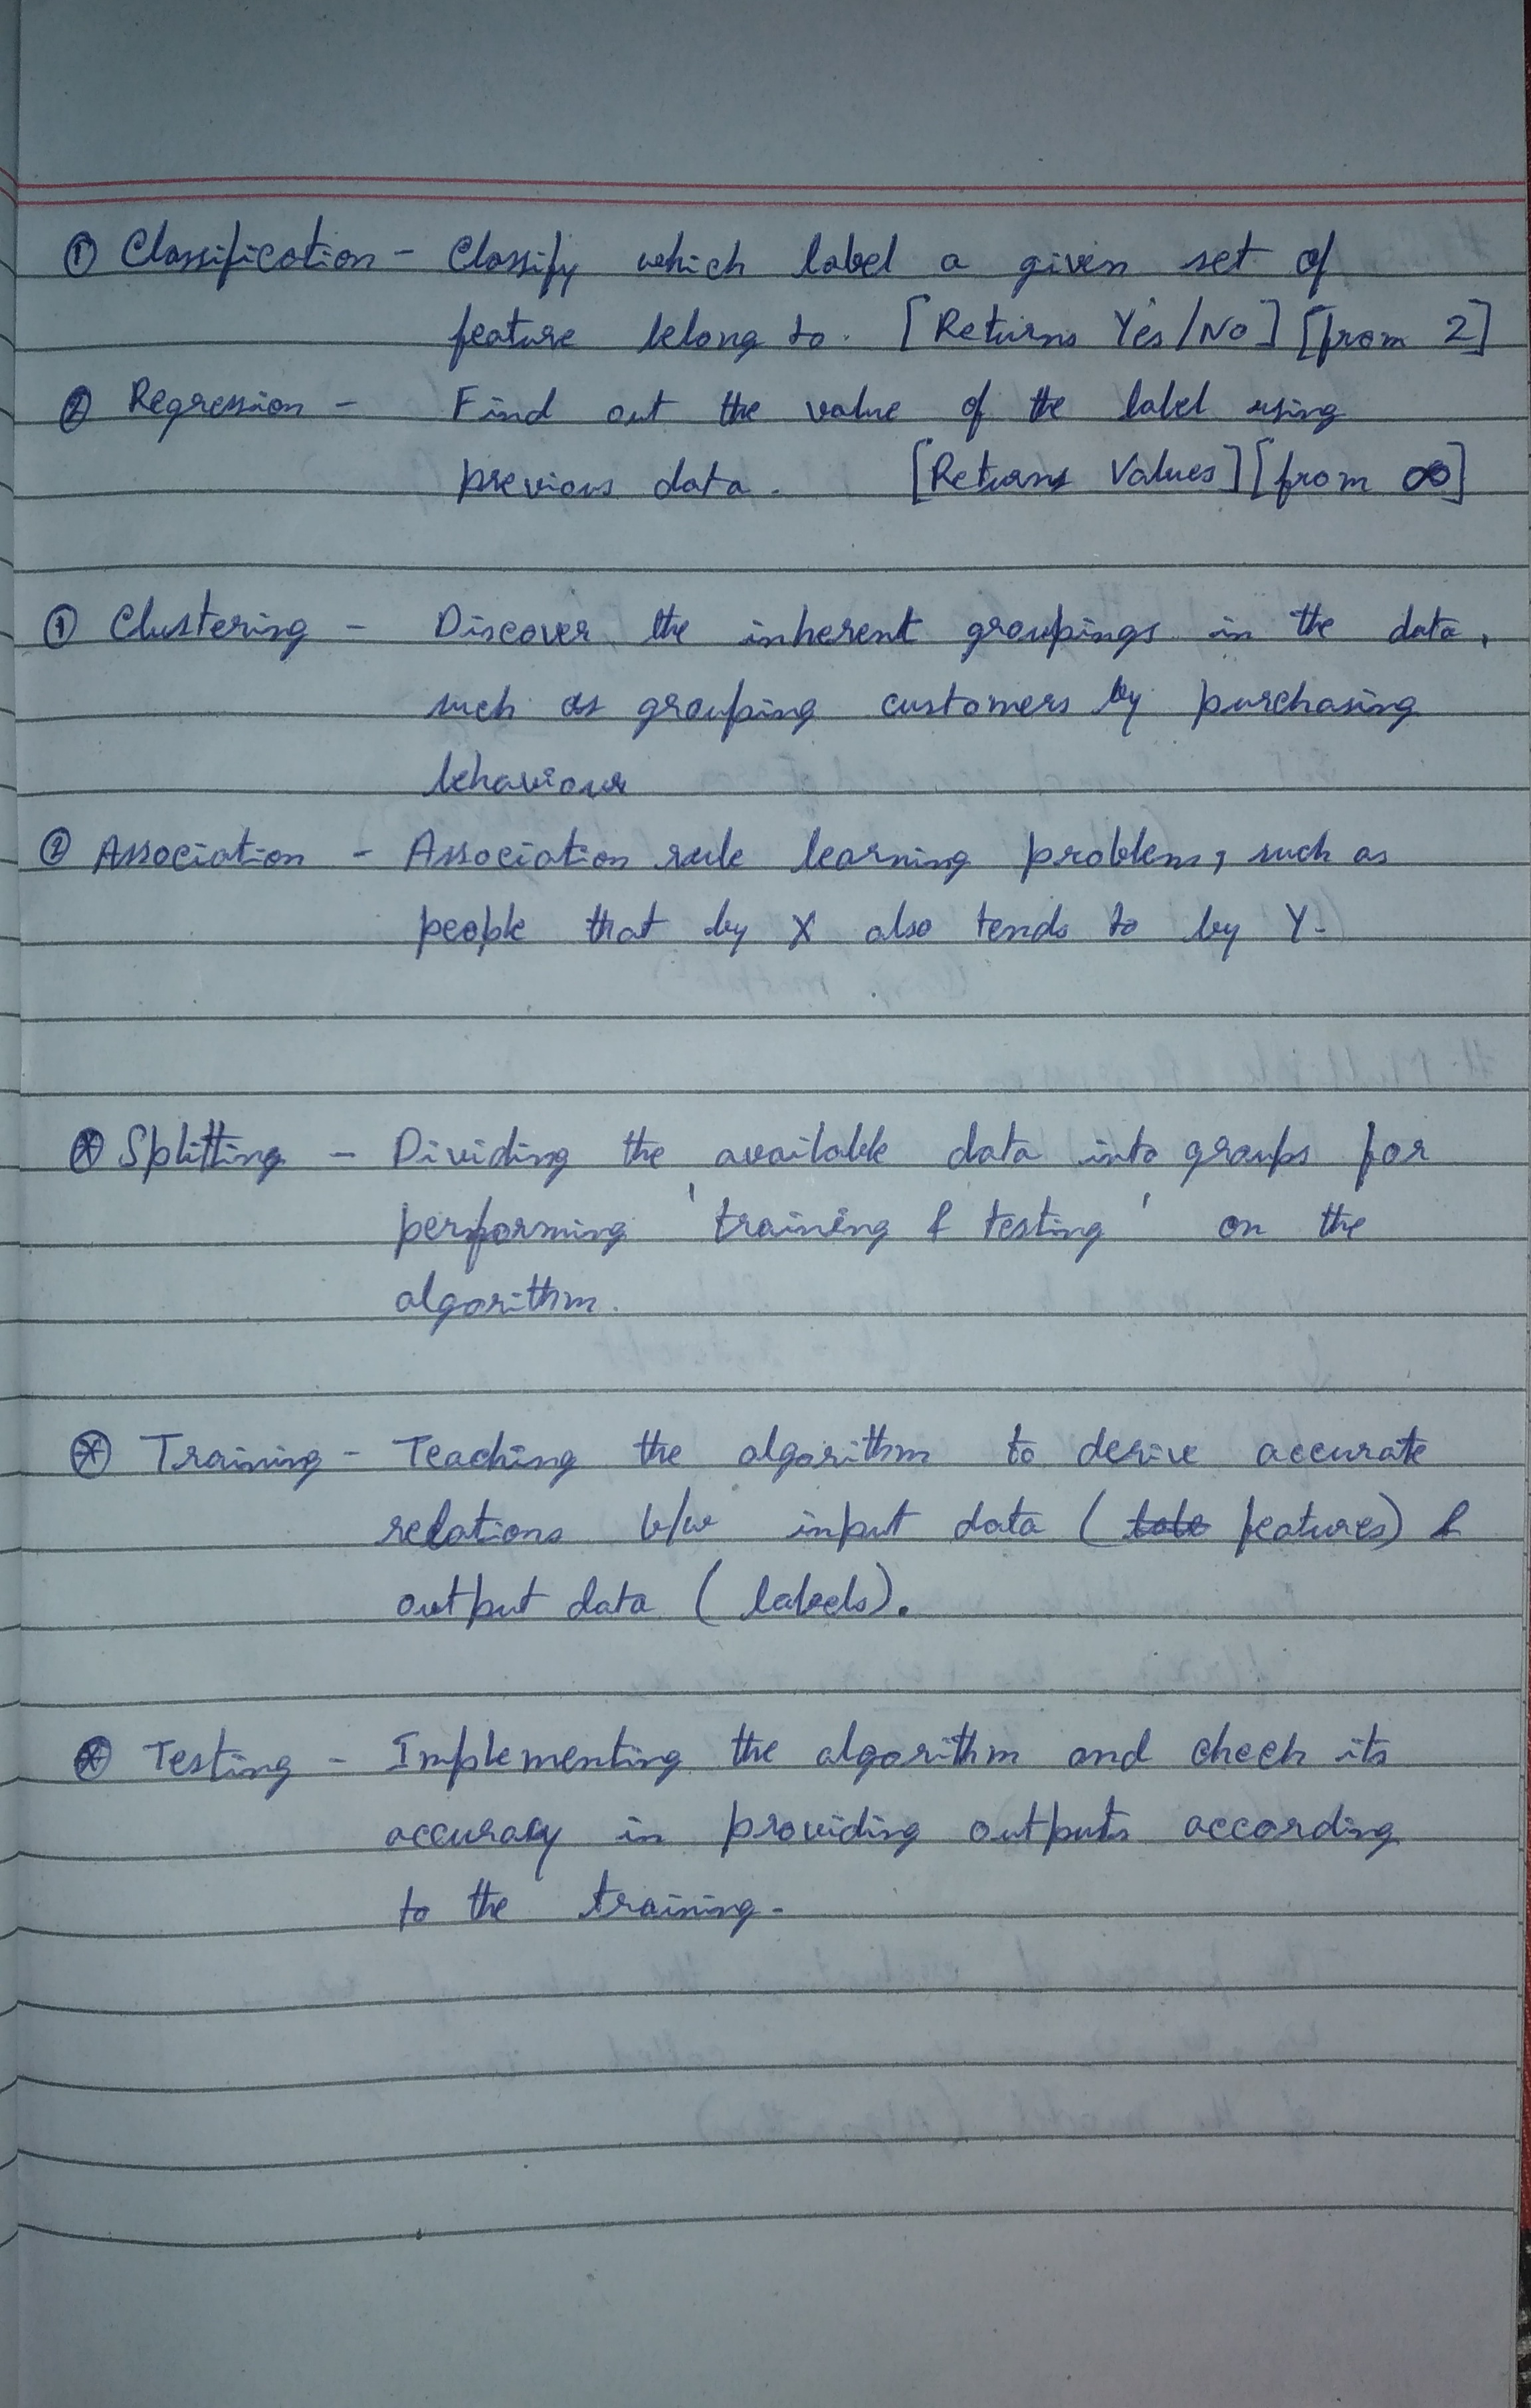 ① Classification - Classify which label a given set of
feature belong to. [Returns Yes/No] [from 2]
② Regression - Find out the value of the label using
previous data. [Returns Values] [from ∞]
① Clustering - Discover the inherent groupings in the data,
such as grouping customers by purchasing
behaviour
② Association - Association rule learning problem, such as
people that by X also tends to by Y.
⊛ Splitting - Dividing the available data into groups for
performing 'training & testing' on the
algorithm.
⊛ Training - Teaching the algorithm to derive accurate
relations b/w input data (features) &
output data (labels).
⊛ Testing - Implementing the algorithm and check its
accuracy in providing outputs according
to the training.